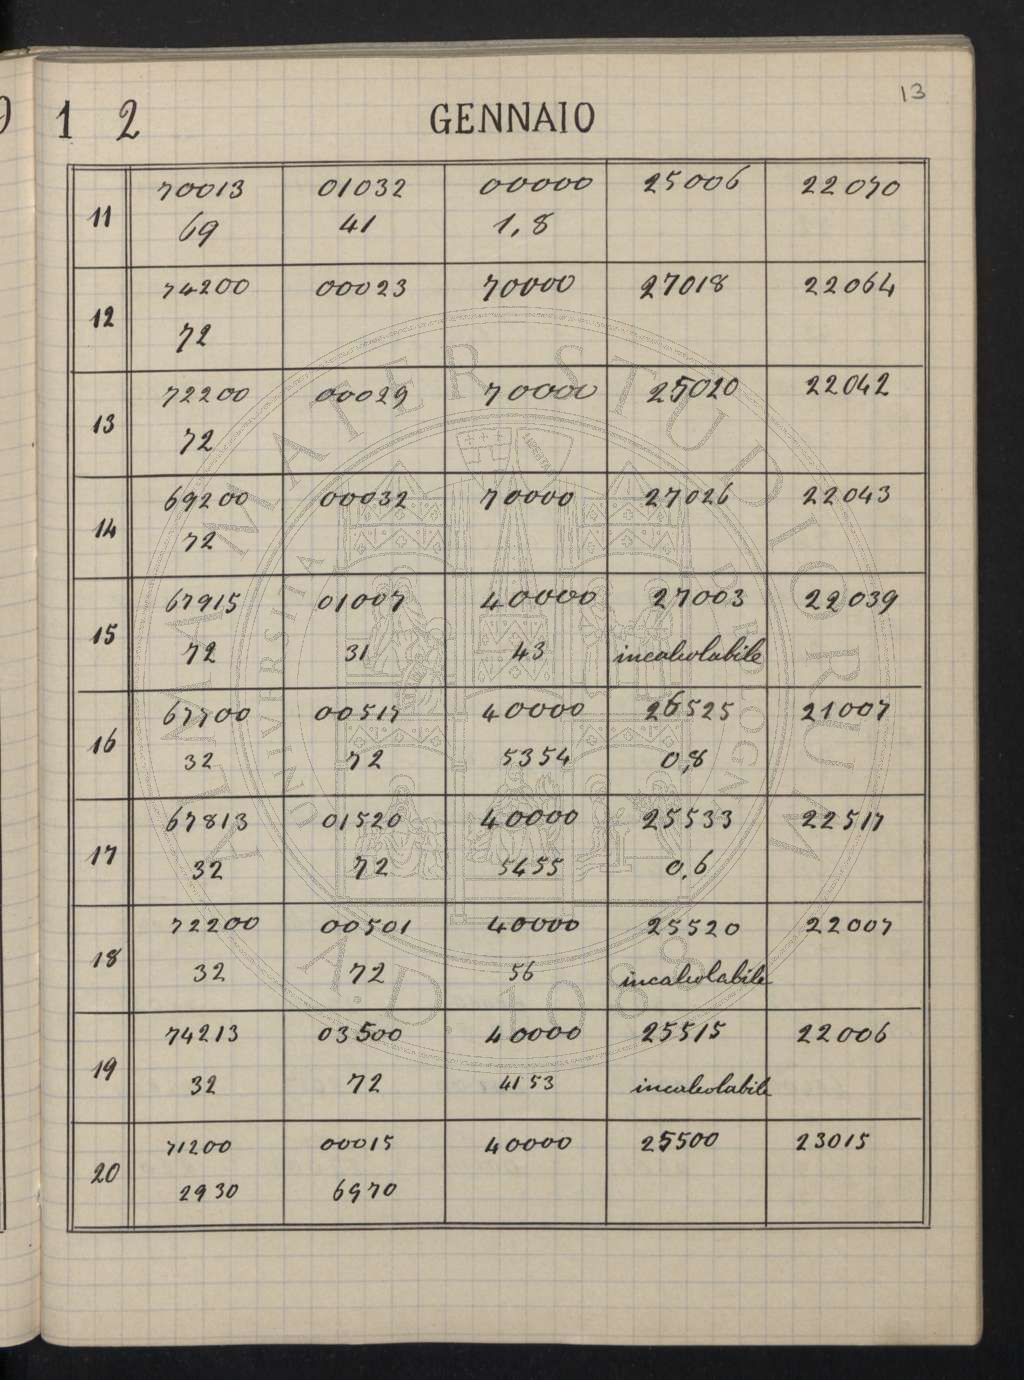 13
9 1 2 GENNAIO
11 70013 01032 00000 25006 22070
69 41 1,8
12 74200 00023 70000 27018 22064
72
13 72200 00029 70000 25020 22042
72
14 69200 00032 70000 27026 22043
72
15 67915 01007 40000 27003 22039
72 31 43 incalcolabile
16 67700 00517 40000 26525 21007
32 72 5354 0,8
17 67813 01520 40000 25533 22517
32 72 5455 0,6
18 72200 00501 40000 25520 22007
32 72 56 incalcolabile
19 74213 03500 40000 25515 22006
32 72 4153 incalcolabile
20 71200 00015 40000 25500 23015
2930 6970
ALMA MATER STUDIORUM
A.D. 1088